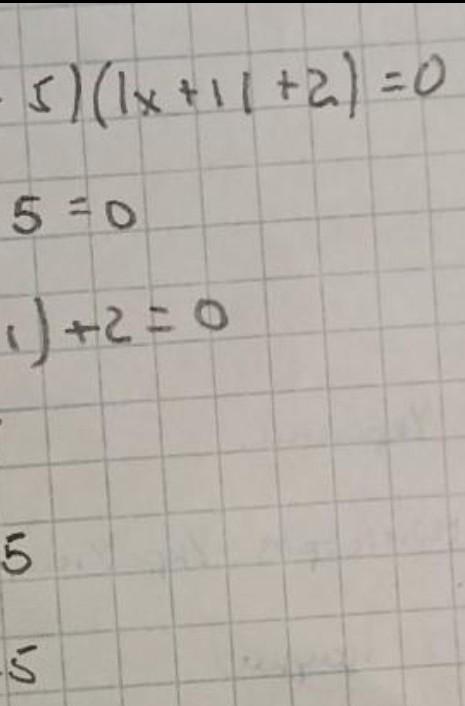 5)(|x+1|+2)=0
5=0
1)+2=0
5
5